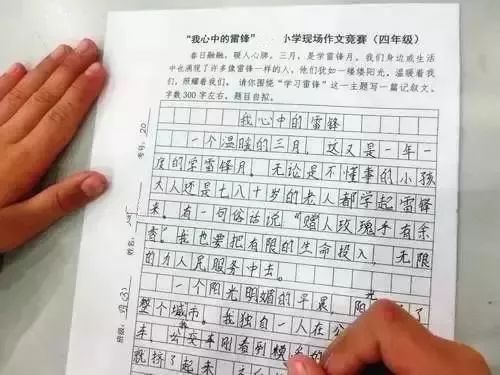 “我心中的雷锋” 小学现场作文竞赛（四年级）
春日融融，暖人心脾。三月，是学雷锋月。我们身边或生活
中也涌现了许多像雷锋一样的人，他们犹如一缕缕阳光，温暖着我
们，照耀着我们。请你围绕“学习雷锋”这一主题写一篇记叙文。
字数300字左右。题目自拟。
我心中的雷锋
一个温暖的三月，这又是一年一
度的学雷锋月。无论是不懂事的小孩
大人还是七八十岁的老人都学起雷锋
来。有一句俗话说“赠人玫瑰手有余
香”我也要把有限的生命投入，无限
的为人民服务中去。
一个阳光明媚的早晨，阳光了
整个城市。我独自一人在公
车公交车刚看到
就挤了起来
考号：20
姓名：
班级：四(3)